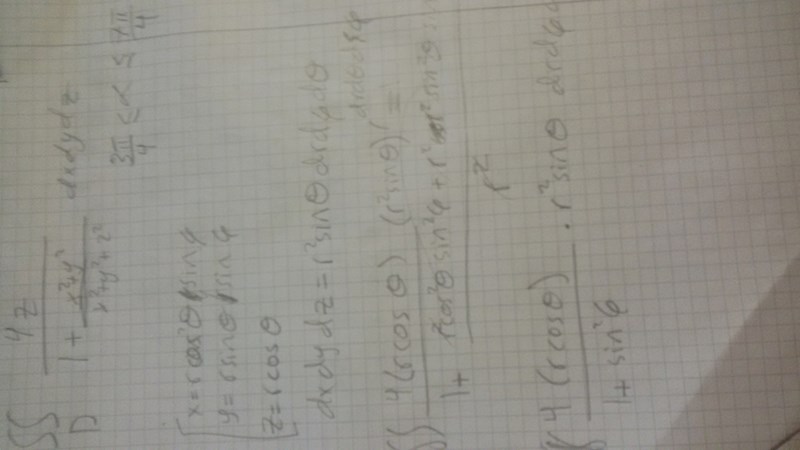 ∬_D 4z / (1 + (x²+y²)/(x²+y²+z²)) dxdydz
3π/4 ≤ α ≤ 7π/4
x = r cosθ sinφ
y = r sinθ sinφ
z = r cosθ
dxdydz = r² sinθ drdφdθ
∬ 4(r cosθ) (r² sinθ) r / (1 + (r² cos²θ sin²φ + r² sin²θ) / r²) drdθdφ =
∬ 4(r cosθ) / (1 + sin²φ) · r² sinθ drdφ